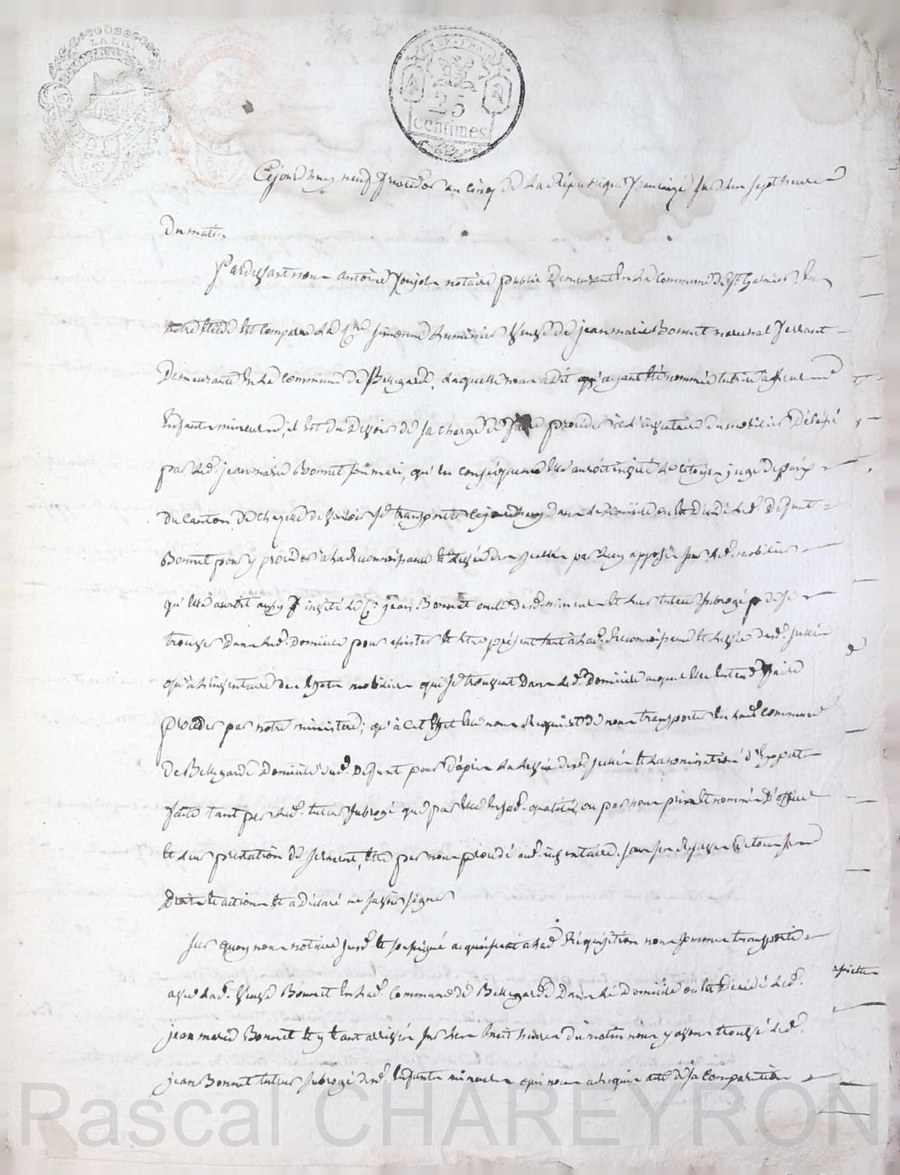 25
centimes
Cejourdhuy neuf an cinq de la République française sur les sept heures
du matin
Pardevant nous Antoine notaire public demeurant en la commune de St Galmier, en
notre étude est comparue la Cne veuve de jean marie Bonnet marechal ferrant
demeurante en la commune de Bellegarde, laquelle nous a dit qu'ayant été nommée tutrice à ses
enfants mineurs, il est du devoir de sa charge de faire proceder à l'inventaire du mobilier délaissé
par led. jean marie Bonnet son mari, qu'en conséquence elle auroit invité le citoyen juge de paix
du canton de de se transporter cejourdhuy dans le domicile ou est décédé led. défunt
Bonnet pour y proceder à la reconnoissance et levée des scellés par luy apposés sur led. mobilier
qu'elle auroit aussy invité le Cn jean Bonnet oncle desd. mineurs et leur tuteur subrogé de se
trouver dans led. domicile pour assister et être présent tant à lad. reconnoissance et levée desd. scellés
qu'à l'inventaire des effets mobiliers qui se trouvent dans led. domicile auquel elle entend faire
proceder par notre ministère; qu'à cet effet elle nous requiert de nous transporter en lad. commune
de Bellegarde domicile dud. défunt pour d'après la levée desd. scellés et la nomination d'expert
faite tant par led. tuteur subrogé que par elle en lad. qualité, ou par nous pris et nommés d'office
et leur prestation de serment, être par nous procédé aud. inventaire, sous ses réserves de tous ses
droits et actions et a déclaré ne savoir signer
Sur quoy nous notaire susd. et soussigné acquiesçant à lad. réquisition nous sommes transporté
avec lad. veuve Bonnet en lad. commune de Bellegarde dans le domicile ou est décédé led.
jean marie Bonnet et y étant arrivés sur les huit heures du matin nous y avons trouvé led.
jean Bonnet tuteur subrogé desd. enfants mineurs qui nous a requis acte de sa comparution
Rascal CHAREYRON